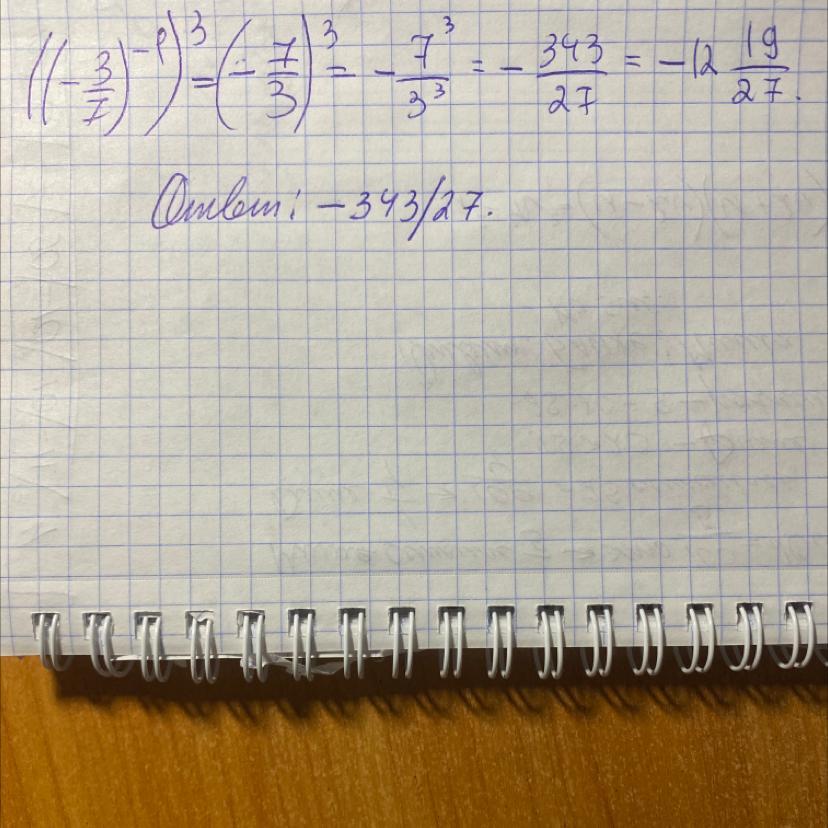 ((-3/7)^-1)^3 = (-7/3)^3 = -7^3/3^3 = -343/27 = -12 19/27.
Ответ: -343/27.